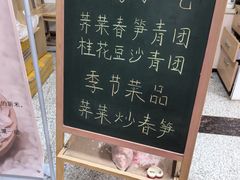 荠菜春笋青团
桂花豆沙青团
季节菜品
荠菜炒春笋